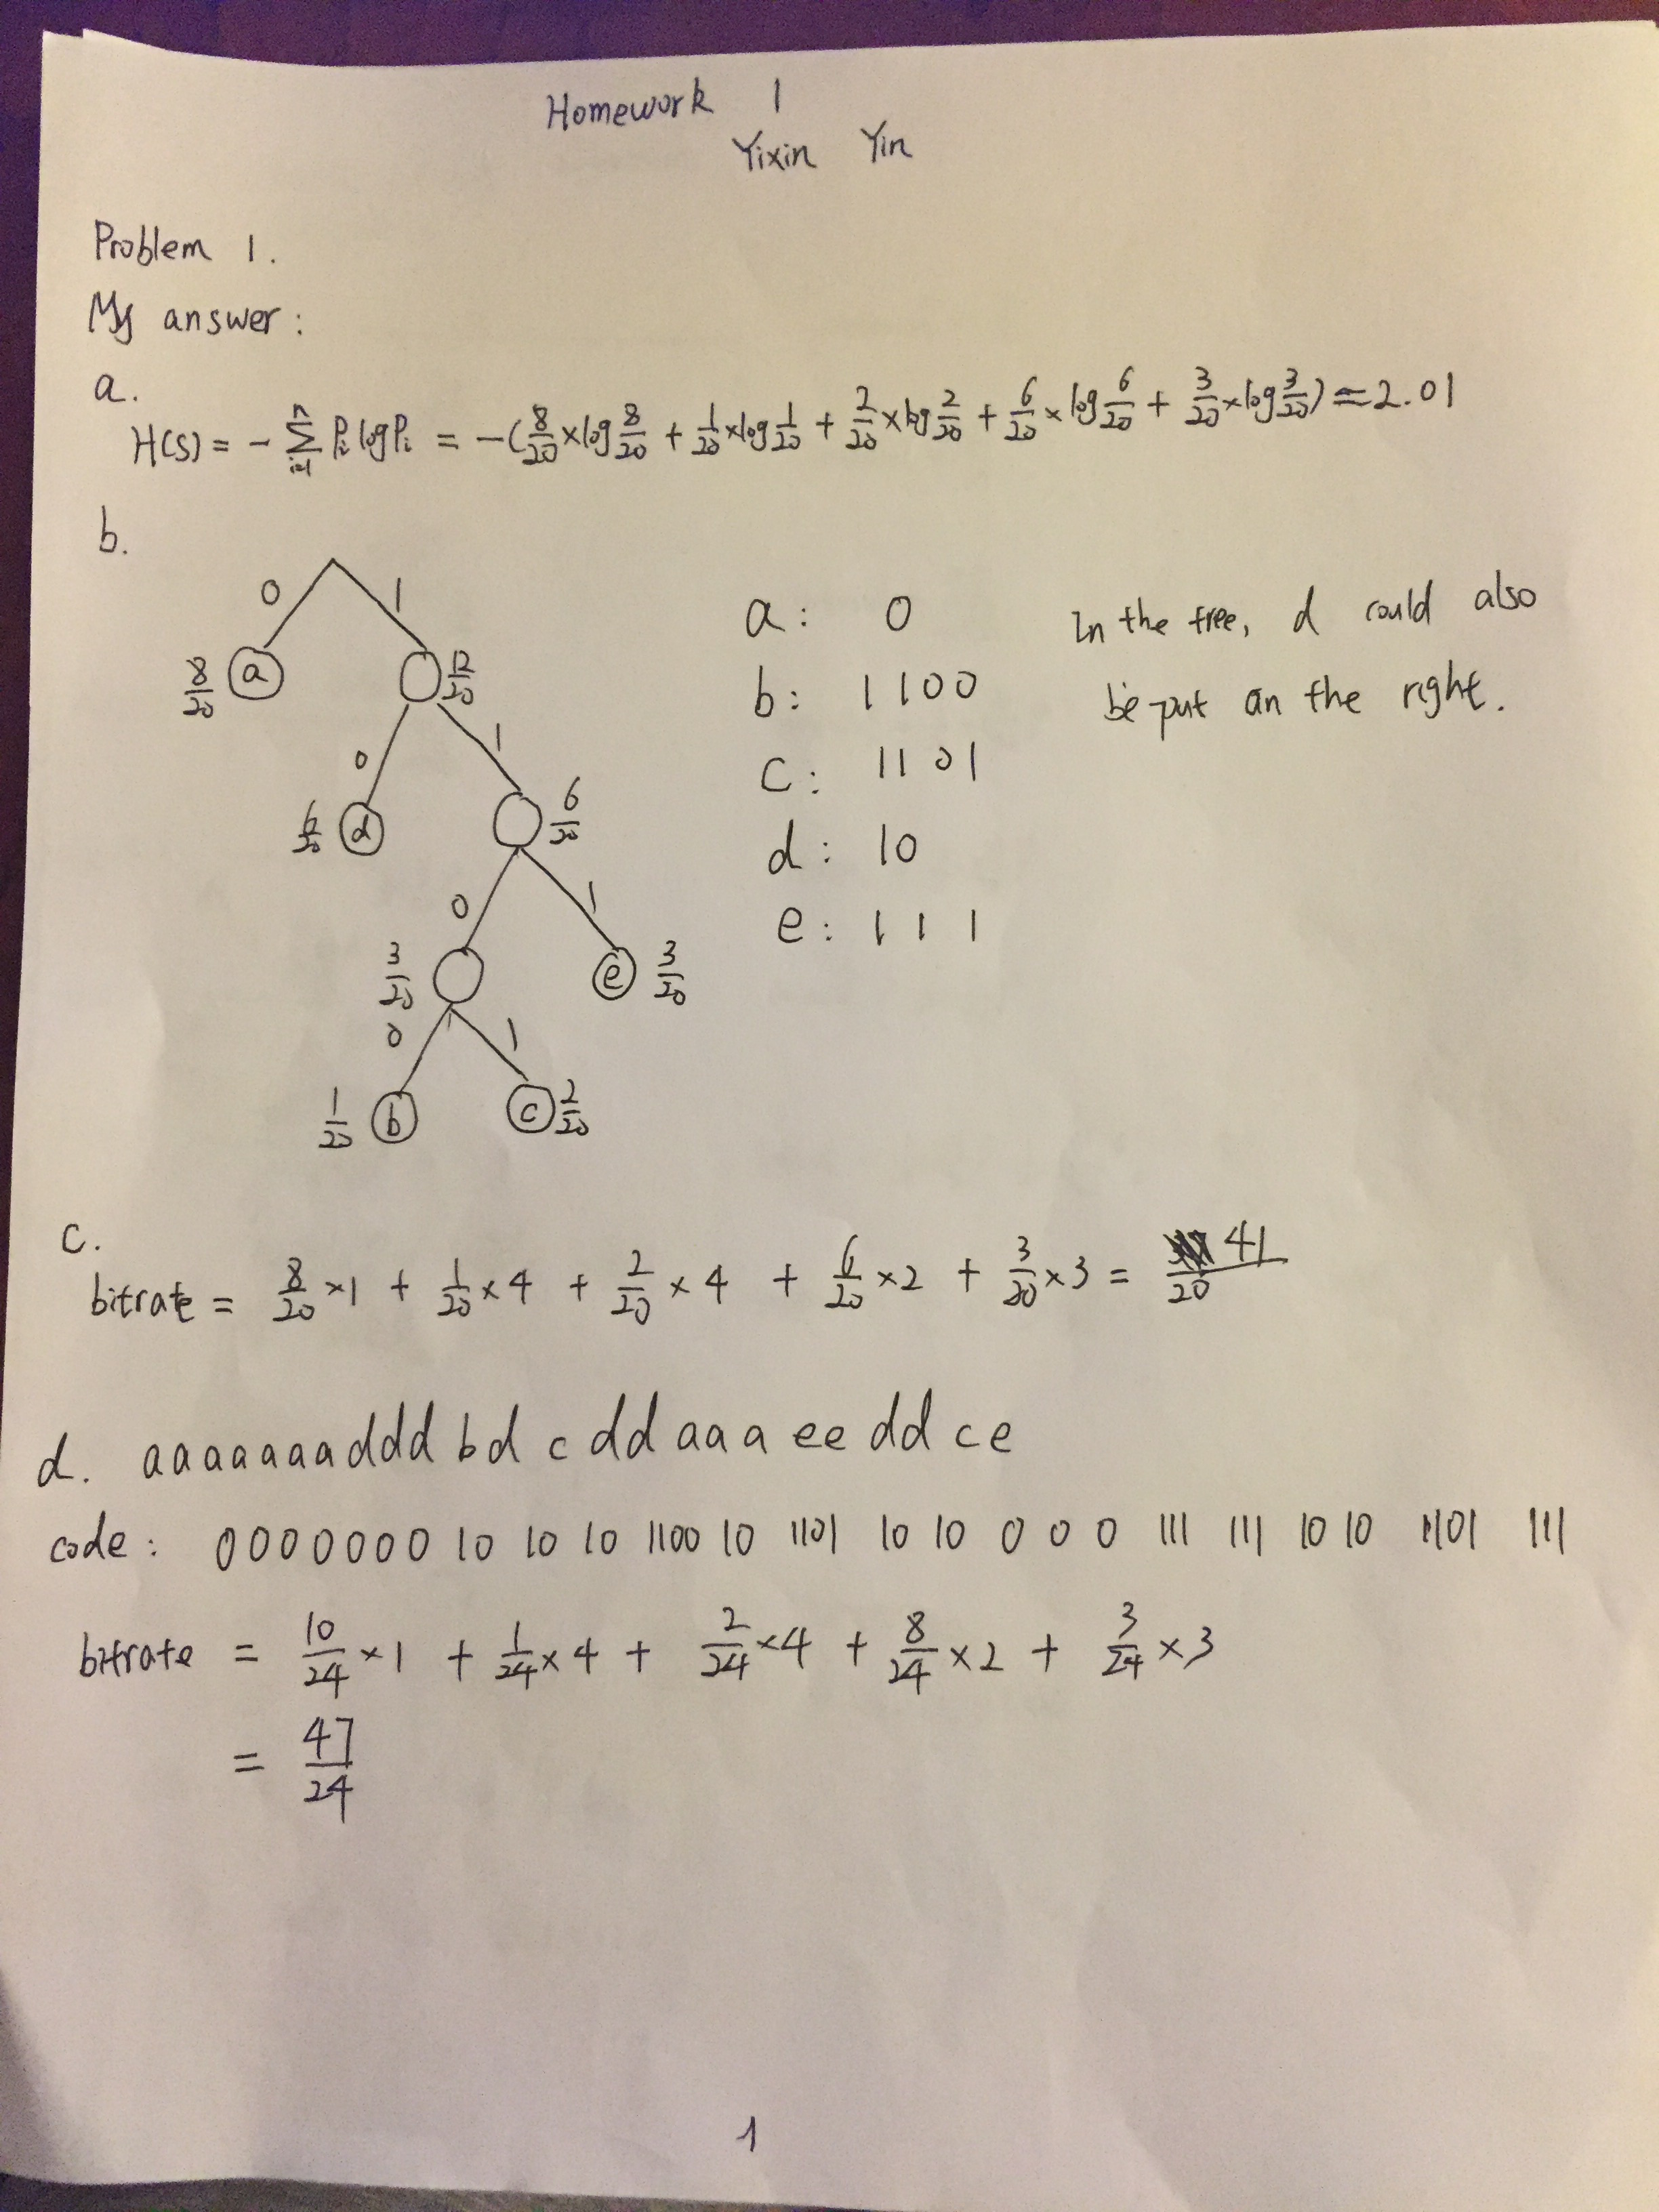 Homework 1
Yixin Yin
Problem 1.
My answer:
a.
H(s) = - ∑ᵢ₌₁ⁿ Pᵢ log Pᵢ = -(8/20 × log 8/20 + 1/20 × log 1/20 + 2/20 × log 2/20 + 6/20 × log 6/20 + 3/20 × log 3/20) ≈ 2.01
b.
0 1
8/20 a 12/20
0 1
6/20 d 6/20
0 1
3/20 e 3/20
0 1
1/20 b c 2/20
a: 0
b: 1100
c: 1101
d: 10
e: 111
In the tree, d could also
be put on the right.
c.
bitrate = 8/20 × 1 + 1/20 × 4 + 2/20 × 4 + 6/20 × 2 + 3/20 × 3 = 41/20
d. aaaaaaaddd bd c dd aaa ee dd ce
code: 0000000 10 10 10 1100 10 1101 10 10 0 0 0 111 111 10 10 1101 111
bitrate = 10/24 × 1 + 1/24 × 4 + 2/24 × 4 + 8/24 × 2 + 3/24 × 3
= 47/24
1